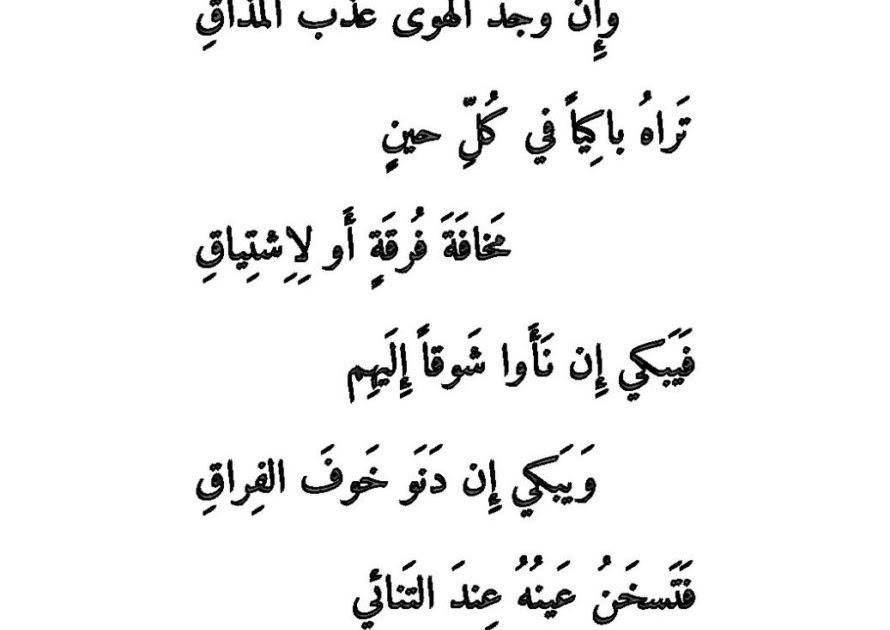 وإِن وجد الهوى عذب المذاقِ
تَراهُ باكِياً في كُلِّ حينٍ
مَخافَةَ فُرقَةٍ أَو لِاِشتِياقِ
فَيَبكي إِن نَأَوا شَوقاً إِلَيهِم
وَيَبكي إِن دَنَو خَوفَ الفِراقِ
فَتَسخَنُ عَينُهُ عِندَ التَنائي